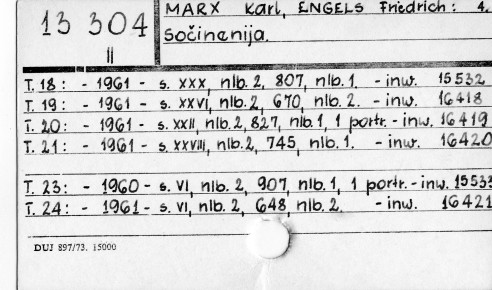 13 304
II
MARX Karl, ENGELS Friedrich: 4.
Sočinenija.
T. 18: - 1961 - s. XXX, nlb. 2, 807, nlb. 1. - inw. 15532
T. 19: - 1961 - s. XXVI, nlb. 2, 670, nlb. 2. - inw. 16418
T. 20: - 1961 - s. XXII, nlb. 2, 827, nlb. 1, 1 portr. - inw. 16419
T. 21: - 1961 - s. XXVIII, nlb. 2, 745, nlb. 1. - inw. 16420
T. 23: - 1960 - s. VI, nlb. 2, 907, nlb. 1, 1 portr. - inw. 15533
T. 24: - 1961 - s. VI, nlb. 2, 648, nlb. 2. - inw. 16421
DUJ 897/73. 15000